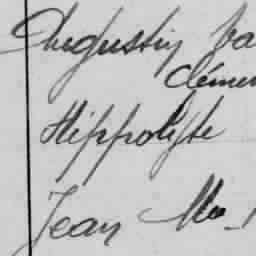 Augustin Ba
Clémen
Hippolyte
Jean Ma